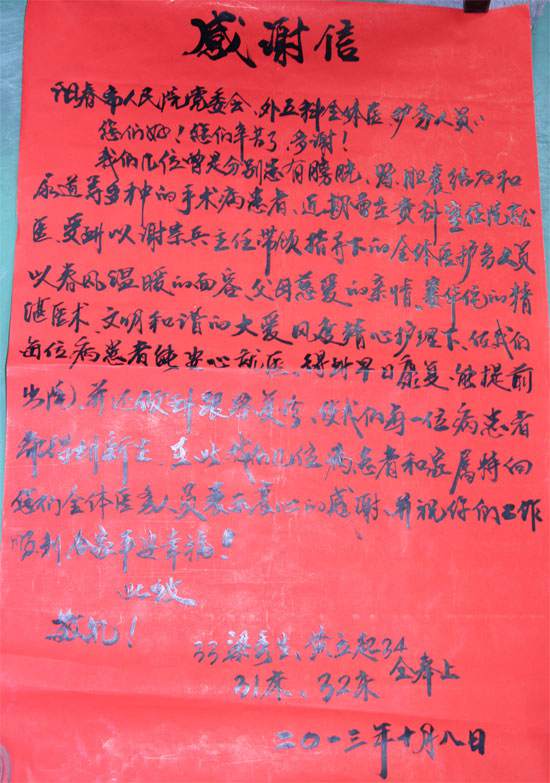 感谢信
阳春市人民院党委会、外五科全体医护务人员:
您们好!您们辛苦了,多谢!
我们几位曾是分别患有膀胱、肾、胆囊结石和
尿道等多种的手术病患者、近期曾在贵科室住院
医、受到以谢宗兵主任带领指导下的全体医护务人员
以春风温暖的面容、父母慈爱的亲情、赛华佗的精
湛医术、文明和谐的大爱日夜精心护理下、使我们
每位病患者能安心就医、得到早日康复、能提前
出院、并还倾科跟踪复诊、使我们每一位病患者
都得到新生、在此我们几位病患者和家属特向
您们全体医务人员表示衷心的感谢、并祝你们工作
顺利合家平安幸福!
此致
敬礼!
33梁秀生、黄立起34
31床、32床 全奉上
二〇一三年十月八日